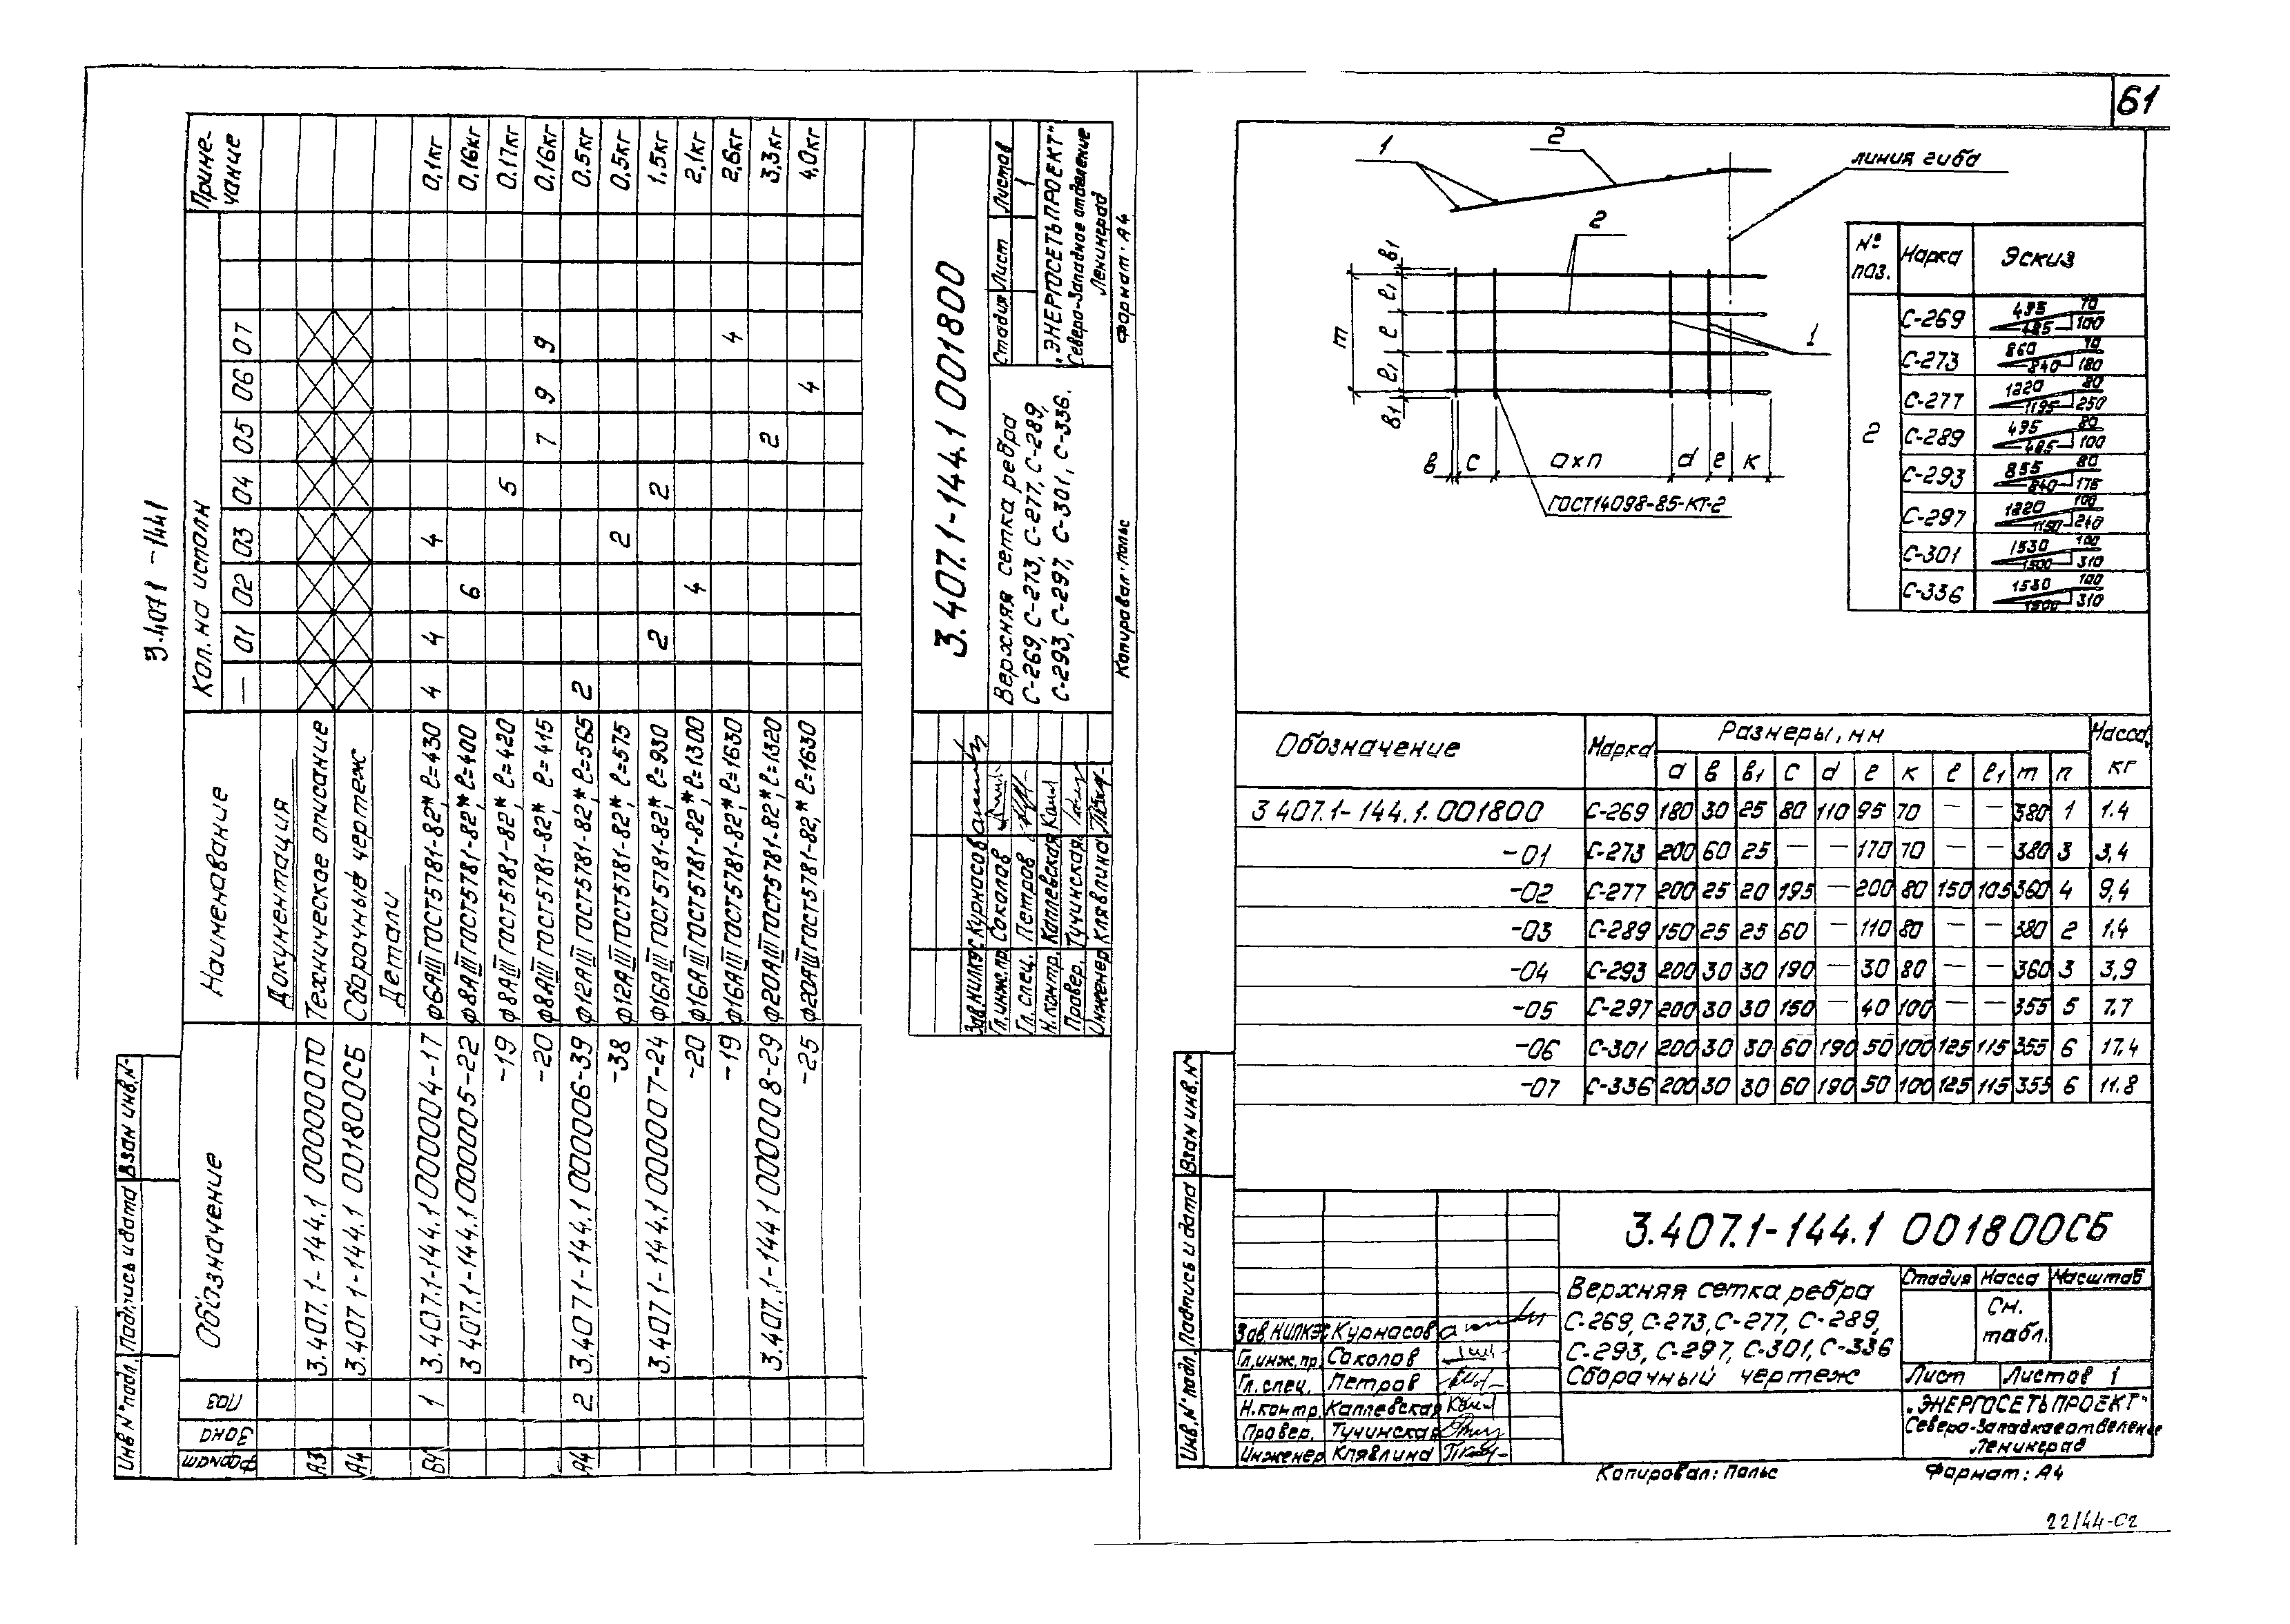 3.4071-1441
Обозначение
Наименование
Кол. на исполн
Приме-
чание
Формат Зона Поз
— 01 02 03 04 05 06 07
Документация
А3 3.407.1-144.1 000000ТО Техническое описание
А4 3.407.1-144.1 001800СБ Сборочный чертеж
Детали
БЧ 1 3.407.1-144.1 000004-17 ф6АIII ГОСТ5781-82*, ℓ=430 4 4 4 0,1кг
3.407.1-144.1 000005-22 ф8АIII ГОСТ5781-82*, ℓ=400 6 0,16кг
-19 ф8АIII ГОСТ5781-82*, ℓ=420 5 0.17кг
-20 ф8АIII ГОСТ5781-82* ℓ=415 7 9 9 0,16кг
А4 2 3.4071-144.1 000006-39 ф12АIII ГОСТ5781-82*, ℓ=565 2 0.5кг
-38 ф12АIII ГОСТ5781-82*, ℓ=575 2 0,5кг
3.407.1-144.1 000007-24 ф16АIII ГОСТ5781-82*, ℓ=930 2 2 1,5кг
-20 ф16АIII ГОСТ5781-82*, ℓ=1300 4 2,1кг
-19 ф16АIII ГОСТ5781-82*, ℓ=1630 4 2,6кг
3.407.1-1441 000008-29 ф20АIII ГОСТ5781-82*, ℓ=1320 2 3,3кг
-25 ф20АIII ГОСТ5781-82*, ℓ=1630 4 4,0кг
3.407.1-144.1 001800
Верхняя сетка ребра
С-269, С-273, С-277, С-289,
С-293, С-297, С-301, С-336.
Стадия Лист Листов
1
"ЭНЕРГОСЕТЬПРОЕКТ"
Северо-Западное отделение
Ленинград
Зав.НИЛКЭС Курносов
Гл.инж.пр. Соколов
Гл.спец. Петров
Н.контр. Каплевская
Провер. Тучинская
Инженер Клявлина
Копировал: Польс Формат: А4
Инв N°подл. Подпись и дата Взам инв.N°
61
1
2
линия гиба
2
1
в1 ℓ1 ℓ ℓ1 в1
m
в с ахп d е к
ГОСТ14098-85-КТ-2
№ поз. Марка Эскиз
2
С-269 495 70 485 100
С-273 860 70 840 180
С-277 1220 80 1195 250
С-289 495 80 485 100
С-293 855 80 840 175
С-297 1220 100 1190 240
С-301 1530 100 1500 310
С-336 1530 100 1500 310
Обозначение Марка Размеры, мм Масса, кг
а в в1 с d е к ℓ ℓ1 m п
3 407.1-144.1. 001800 С-269 180 30 25 80 110 95 70 — — 380 1 1.4
-01 С-273 200 60 25 — — 170 70 — — 380 3 3,4
-02 С-277 200 25 20 195 — 200 80 150 105 360 4 9,4
-03 С-289 150 25 25 60 — 110 80 — — 380 2 1.4
-04 С-293 200 30 30 190 — 30 80 — — 360 3 3,9
-05 С-297 200 30 30 150 — 40 100 — — 355 5 7.7
-06 С-301 200 30 30 60 190 50 100 125 115 355 6 17.4
-07 С-336 200 30 30 60 190 50 100 125 115 355 6 11.8
3.407.1-144.1 001800СБ
Верхняя сетка ребра
С-269, С-273, С-277, С-289,
С-293, С-297, С-301, С-336
Сборочный чертеж
Стадия Масса Масштаб
См.
табл.
Лист Листов 1
"ЭНЕРГОСЕТЬПРОЕКТ"
Северо-Западное отделение
Ленинград
Зав.НИЛКЭС Курносов
Гл.инж.пр. Соколов
Гл.спец. Петров
Н.контр. Каплевская
Провер. Тучинская
Инженер Клявлина
Инв.N°подл. Подпись и дата Взам инв.N°
Копировал: Польс Формат: А4
22144-С2